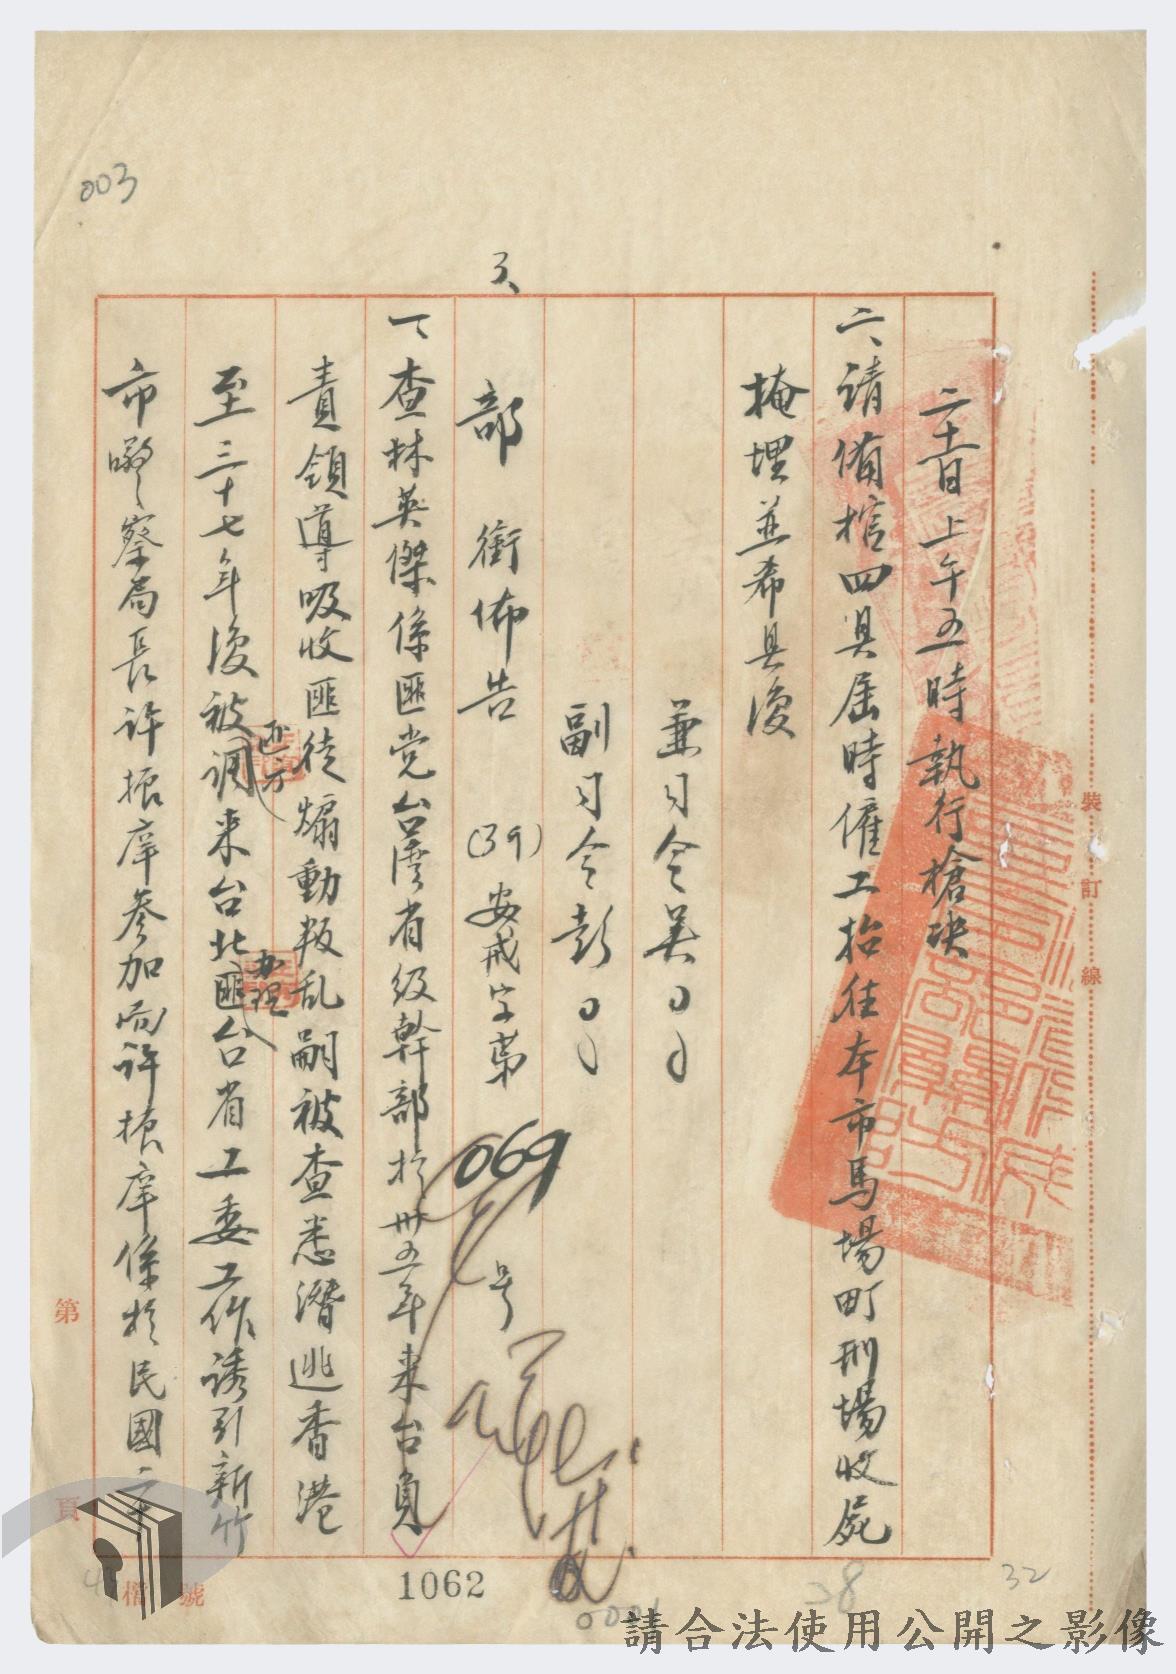 003
二十一日上午五時執行槍决
六、請備棺四具屆時僱工抬往本市馬場町刑場收屍
掩埋並希具復
兼司令吳
副司令彭
部銜佈告 (39)安戒字第069号
一、查林英傑係匪党台湾省级幹部於卅五年来台負
責領導吸收匪徒煽動叛乱嗣被查悉潛逃香港
至三十七年後被調来台北匪台省工委工作誘引新竹
匪方
办理
市警察局長許振庠參加而許振庠係於民國二十
裝訂線
第
頁
檔號
1062
38
32
請合法使用公開之影像